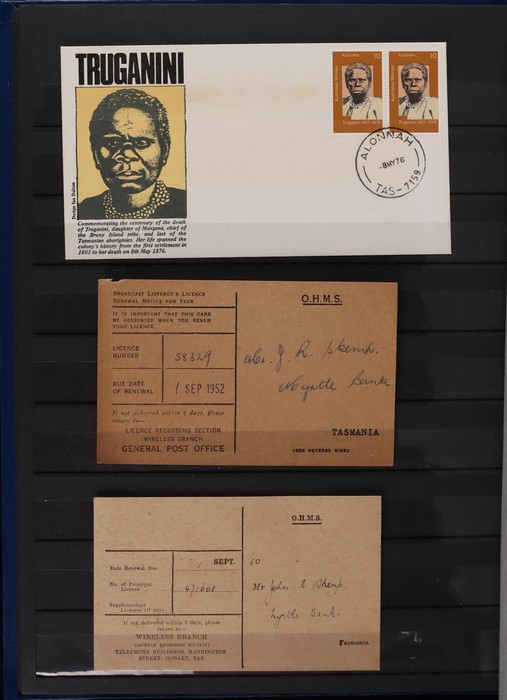 TRUGANINI
Design Ian Dalton
Commemorating the centenary of the death
of Truganini, daughter of Mangana, chief of
the Bruny Island tribe, and last of the
Tasmanian aboriginies. Her life spanned the
colony's history from the first settlement in
1803 to her death on 8th May 1876.
Australia 10
Truganini 1812-1876
Australia 10
Truganini 1812-1876
ALONNAH
-8MY76
TAS-7159
BROADCAST LISTENER'S LICENCE
RENEWAL NOTICE FOR YEAR
IT IS IMPORTANT THAT THIS CARD
BE PRESENTED WHEN YOU RENEW
YOUR LICENCE.
LICENCE
NUMBER
58329
DUE DATE
OF RENEWAL
1 SEP 1952
If not delivered within 7 days, please
return to—
LICENCE RECORDING SECTION
WIRELESS BRANCH
GENERAL POST OFFICE
O.H.M.S.
Mr. J. R. Skemp.
Myrtle Bank
TASMANIA
(SEE REVERSE SIDE)
Date Renewal Due
1 SEPT. 50
No. of Principal
Licence
47008
Supplementary
Licences (if any)
If not delivered within 7 days, please
return to—
WIRELESS BRANCH
(LICENCE RECORDS SECTION)
TELEPHONE BUILDINGS, HARRINGTON
STREET, HOBART, TAS.
O.H.M.S.
Mr John R Skemp,
Myrtle Bank.
Tasmania.